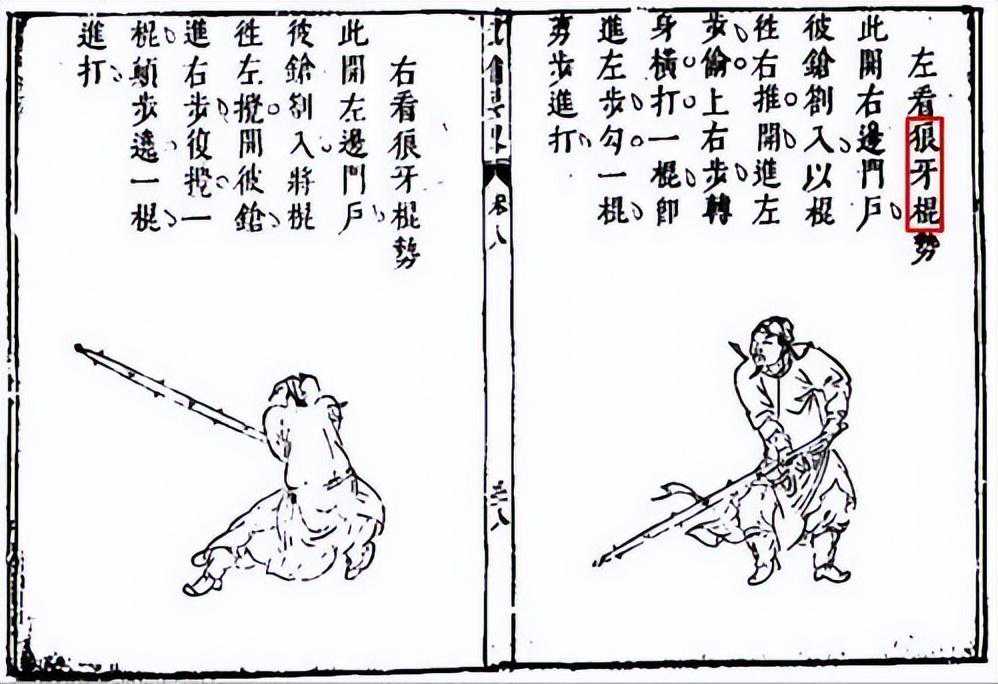 左看狼牙棍勢
此開右邊門戶
彼鎗劄入以棍
徃右推開進左
步偷上右步轉
身橫打一棍即
進左步勾一棍
剪步進打
卷八
三八
右看狼牙棍勢
此開左邊門戶
彼鎗劄入將棍
徃左攪開彼鎗
進右步復攪一
棍顛步遶一棍
進打